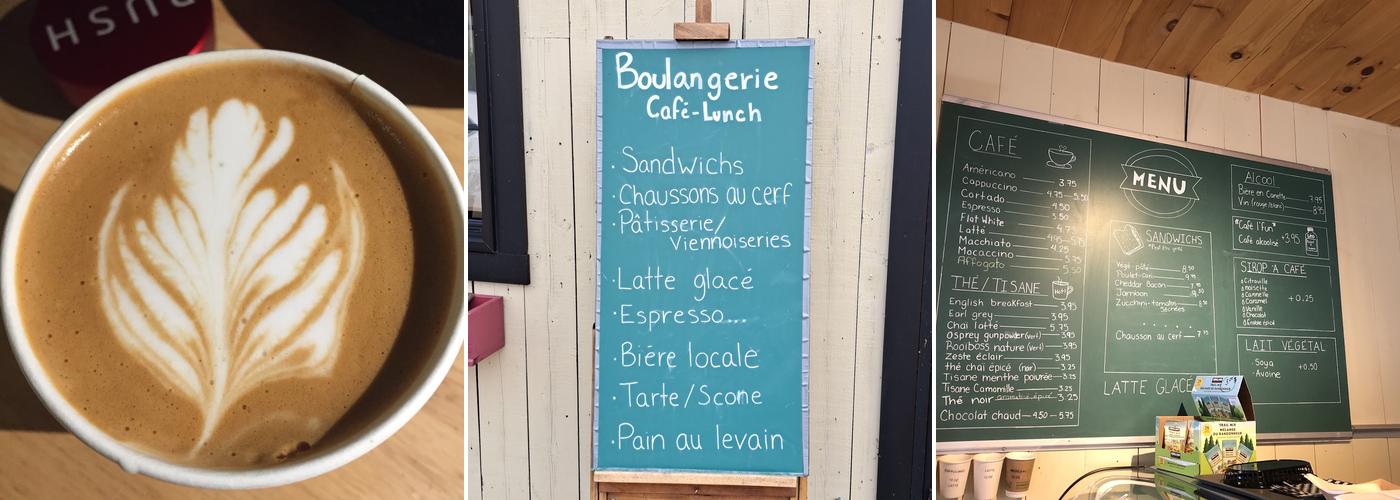 RUSH
Boulangerie
Café-Lunch
· Sandwichs
· Chaussons au cerf
· Pâtisserie/
Viennoiseries
· Latte glacé
· Espresso...
· Bière locale
· Tarte/Scone
· Pain au levain
CAFÉ
Américano 3.75
Cappuccino
Cortado 4.75-5.50
Espresso 4.50
Flat White 3.50
Latté 4.75
Macchiato 4.95-5.75
Mocaccino 4.25
Affogato 5.75
5.50
THÉ/TISANE
English breakfast 3.95
Earl grey 3.95
Chai latté 5.75
Osprey gunpowder (vert) 3.95
Rooiboss nature (vert) 3.95
Zeste éclair 3.95
thé chai épicé (noir) 3.25
Tisane menthe poivrée 3.25
Tisane Camomille 3.25
Thé noir aromatisé épicé 3.25
Chocolat chaud 4.50-5.75
MENU
SANDWICHS
Végé pâté 8.50
Poulet-cari
Cheddar Bacon
Jambon
Zucchini-tomates
Séchées
Chausson au cerf 7.75
LATTE GLACÉ
Alcool
Bière en Canette 7.95
Vin (rouge/blanc) 8.95
"Café l'Fun"
Café alcoolisé +3.95
SIROP À CAFÉ
Citrouille
noisette
Cannelle
Caramel
Vanille
Chocolat
Érable épicé
+0.25
LAIT VÉGÉTAL
· Soya
· Avoine
+0.50
TRAIL MIX
MÉLANGE
DU RANDONNEUR